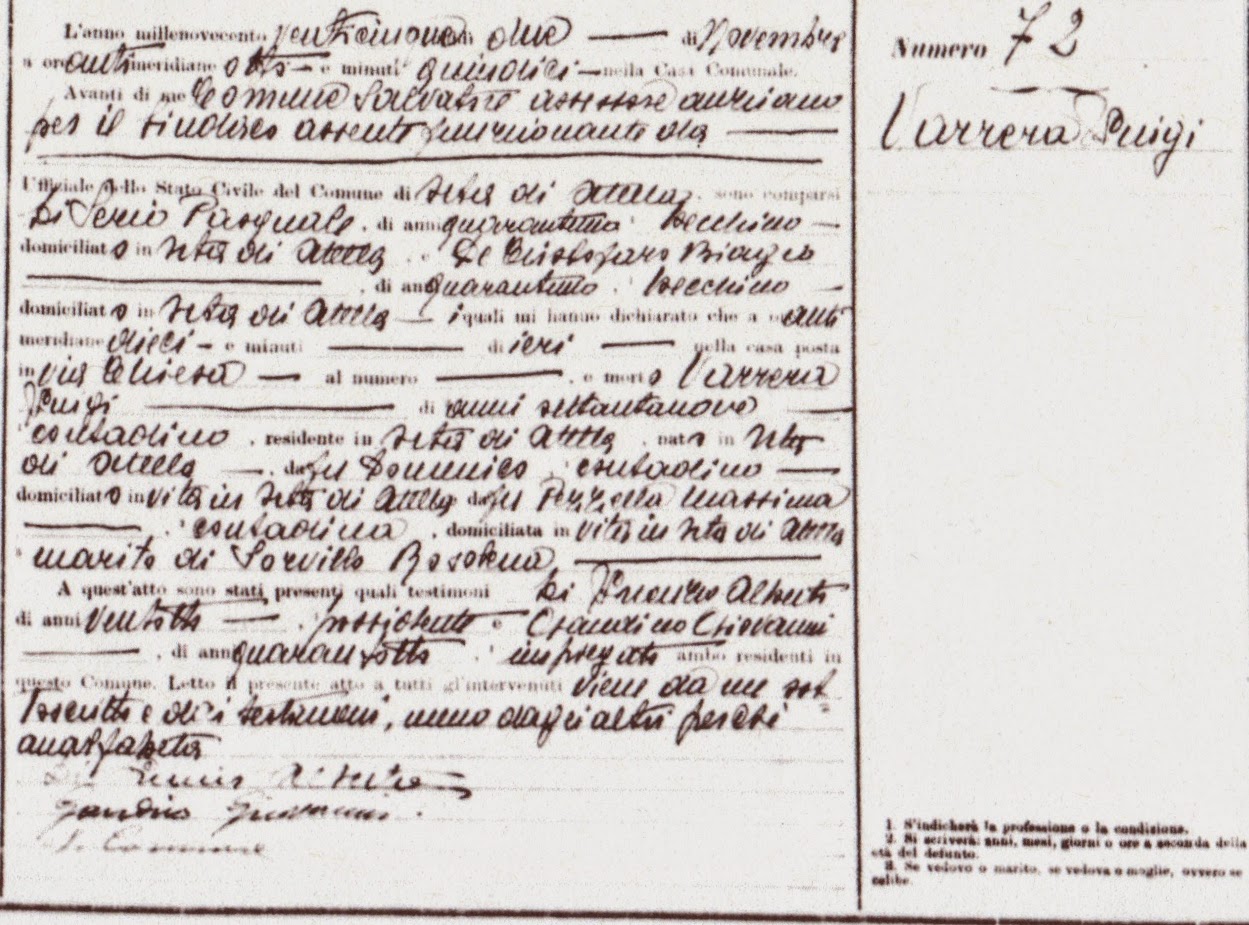 L'anno millenovecento venticinque addì due — di Novembre
a ore anti meridiane otto — e minuti quindici — nella Casa Comunale.
Avanti di me Comune Salvatore assessore anziano
per il sindaco assente funzionante da —
Ufficiale dello Stato Civile del Comune di di Atella, sono comparsi
Di Serio Pasquale, di anni quarantuno becchino —
domiciliato in di Atella e De Cristofaro Biagio
— , di anni quarantuno, becchino —
domiciliato in di Atella — i quali mi hanno dichiarato che a ore anti
meridiane dieci — e minuti — di ieri — nella casa posta
in via Chiesa — al numero — , è morto Varrera
Luigi — di anni settantanove —
contadino, residente in di Atella, nato in
di Atella —, da fu Domenico, contadino —
domiciliato in vita in di Atella e da fu Pezzella Massima
— , contadina, domiciliata in vita in di Atella
marito di Sorvillo Rosolena —
A quest'atto sono stati presenti quali testimoni Di Alberto
di anni ventotto —, possidente e Giandino Giovanni
— , di anni quarantotto, impiegato ambo residenti in
questo Comune. Letto il presente atto a tutti gl'intervenuti viene da me sot-
toscritto e dai testimoni, meno dagli altri perchè
analfabeti
Giandino Giovanni.
S. Comune
Numero 72
Varrera Luigi
1. S'indicherà la professione o la condizione.
2. Si scriverà: anni, mesi, giorni o ore a seconda della
età del defunto.
3. Se vedovo o marito, se vedova o moglie, ovvero se
celibe.